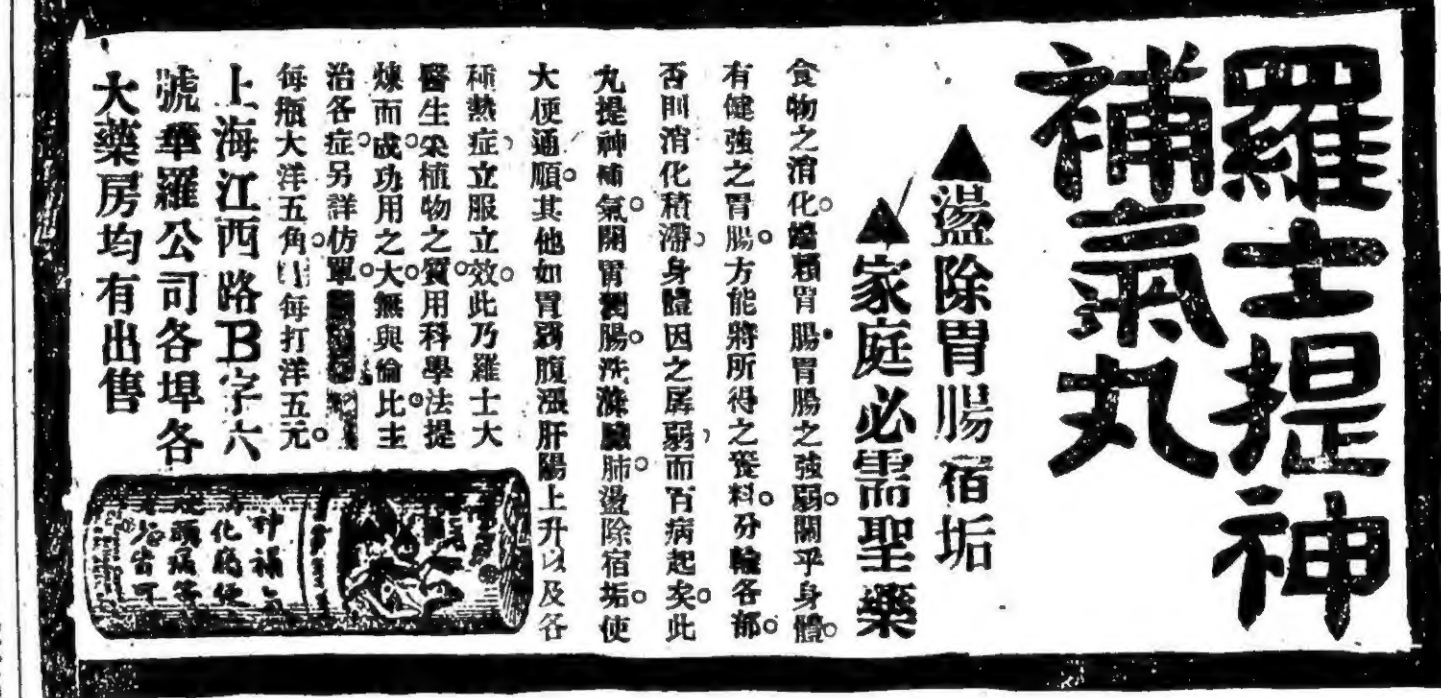 羅士提神
補氣丸
▲盪除胃腸宿垢
▲家庭必需聖藥
食物之消化。端賴胃腸。胃腸之強弱。關乎身體。
有健強之胃腸。方能將所得之養料。分輸各部。
否則消化積滯。身體因之孱弱。而百病起矣。此
丸提神補氣。開胃潤腸。洗滌臟肺。盪除宿垢。使
大便通順。其他如胃弱腹漲肝陽上升以及各
種熱症。立服立效。此乃羅士大
醫生采植物之質。用科學法提
煉而成。功用之大。無與倫比。主
治各症。另詳仿單。
每瓶大洋五角。每打洋五元。
上海江西路B字六
號華羅公司各埠各
大藥房均有出售
神補氣